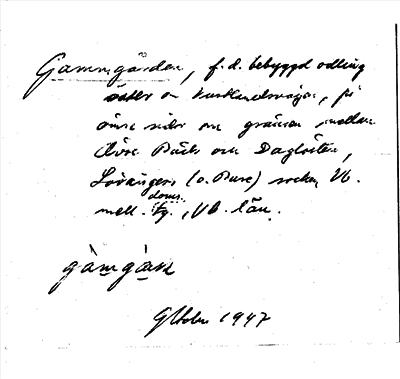 Gammgården, f.d. bebyggd odling
öster om kustlandsvägen, på
ömse sidor om gränsen mellan
Övre Bäck och Daglösten,
Lövångers (o. Bure) socken Vb.
mell. doms. tg., Vb. län.
gàmgàɳ
Oktober 1947